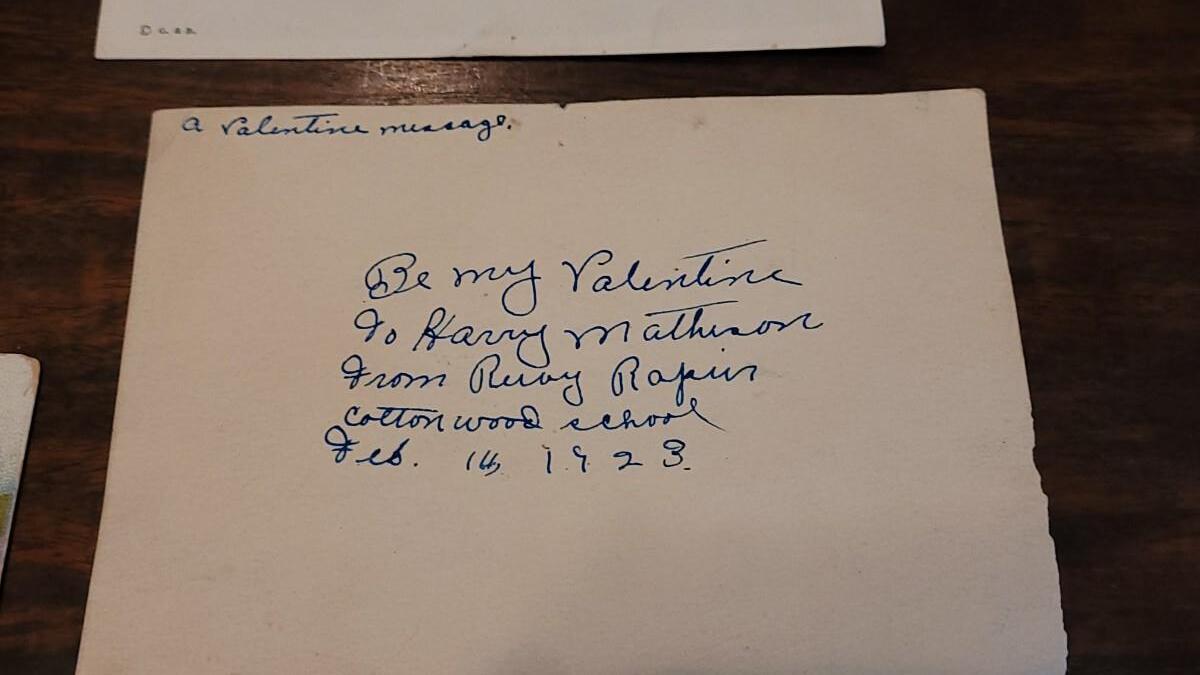 © G. & B.
a Valentine message.
Be my Valentine
To Harry Mathison
From Rapin
Cottonwood school
Feb. 14, 1923.